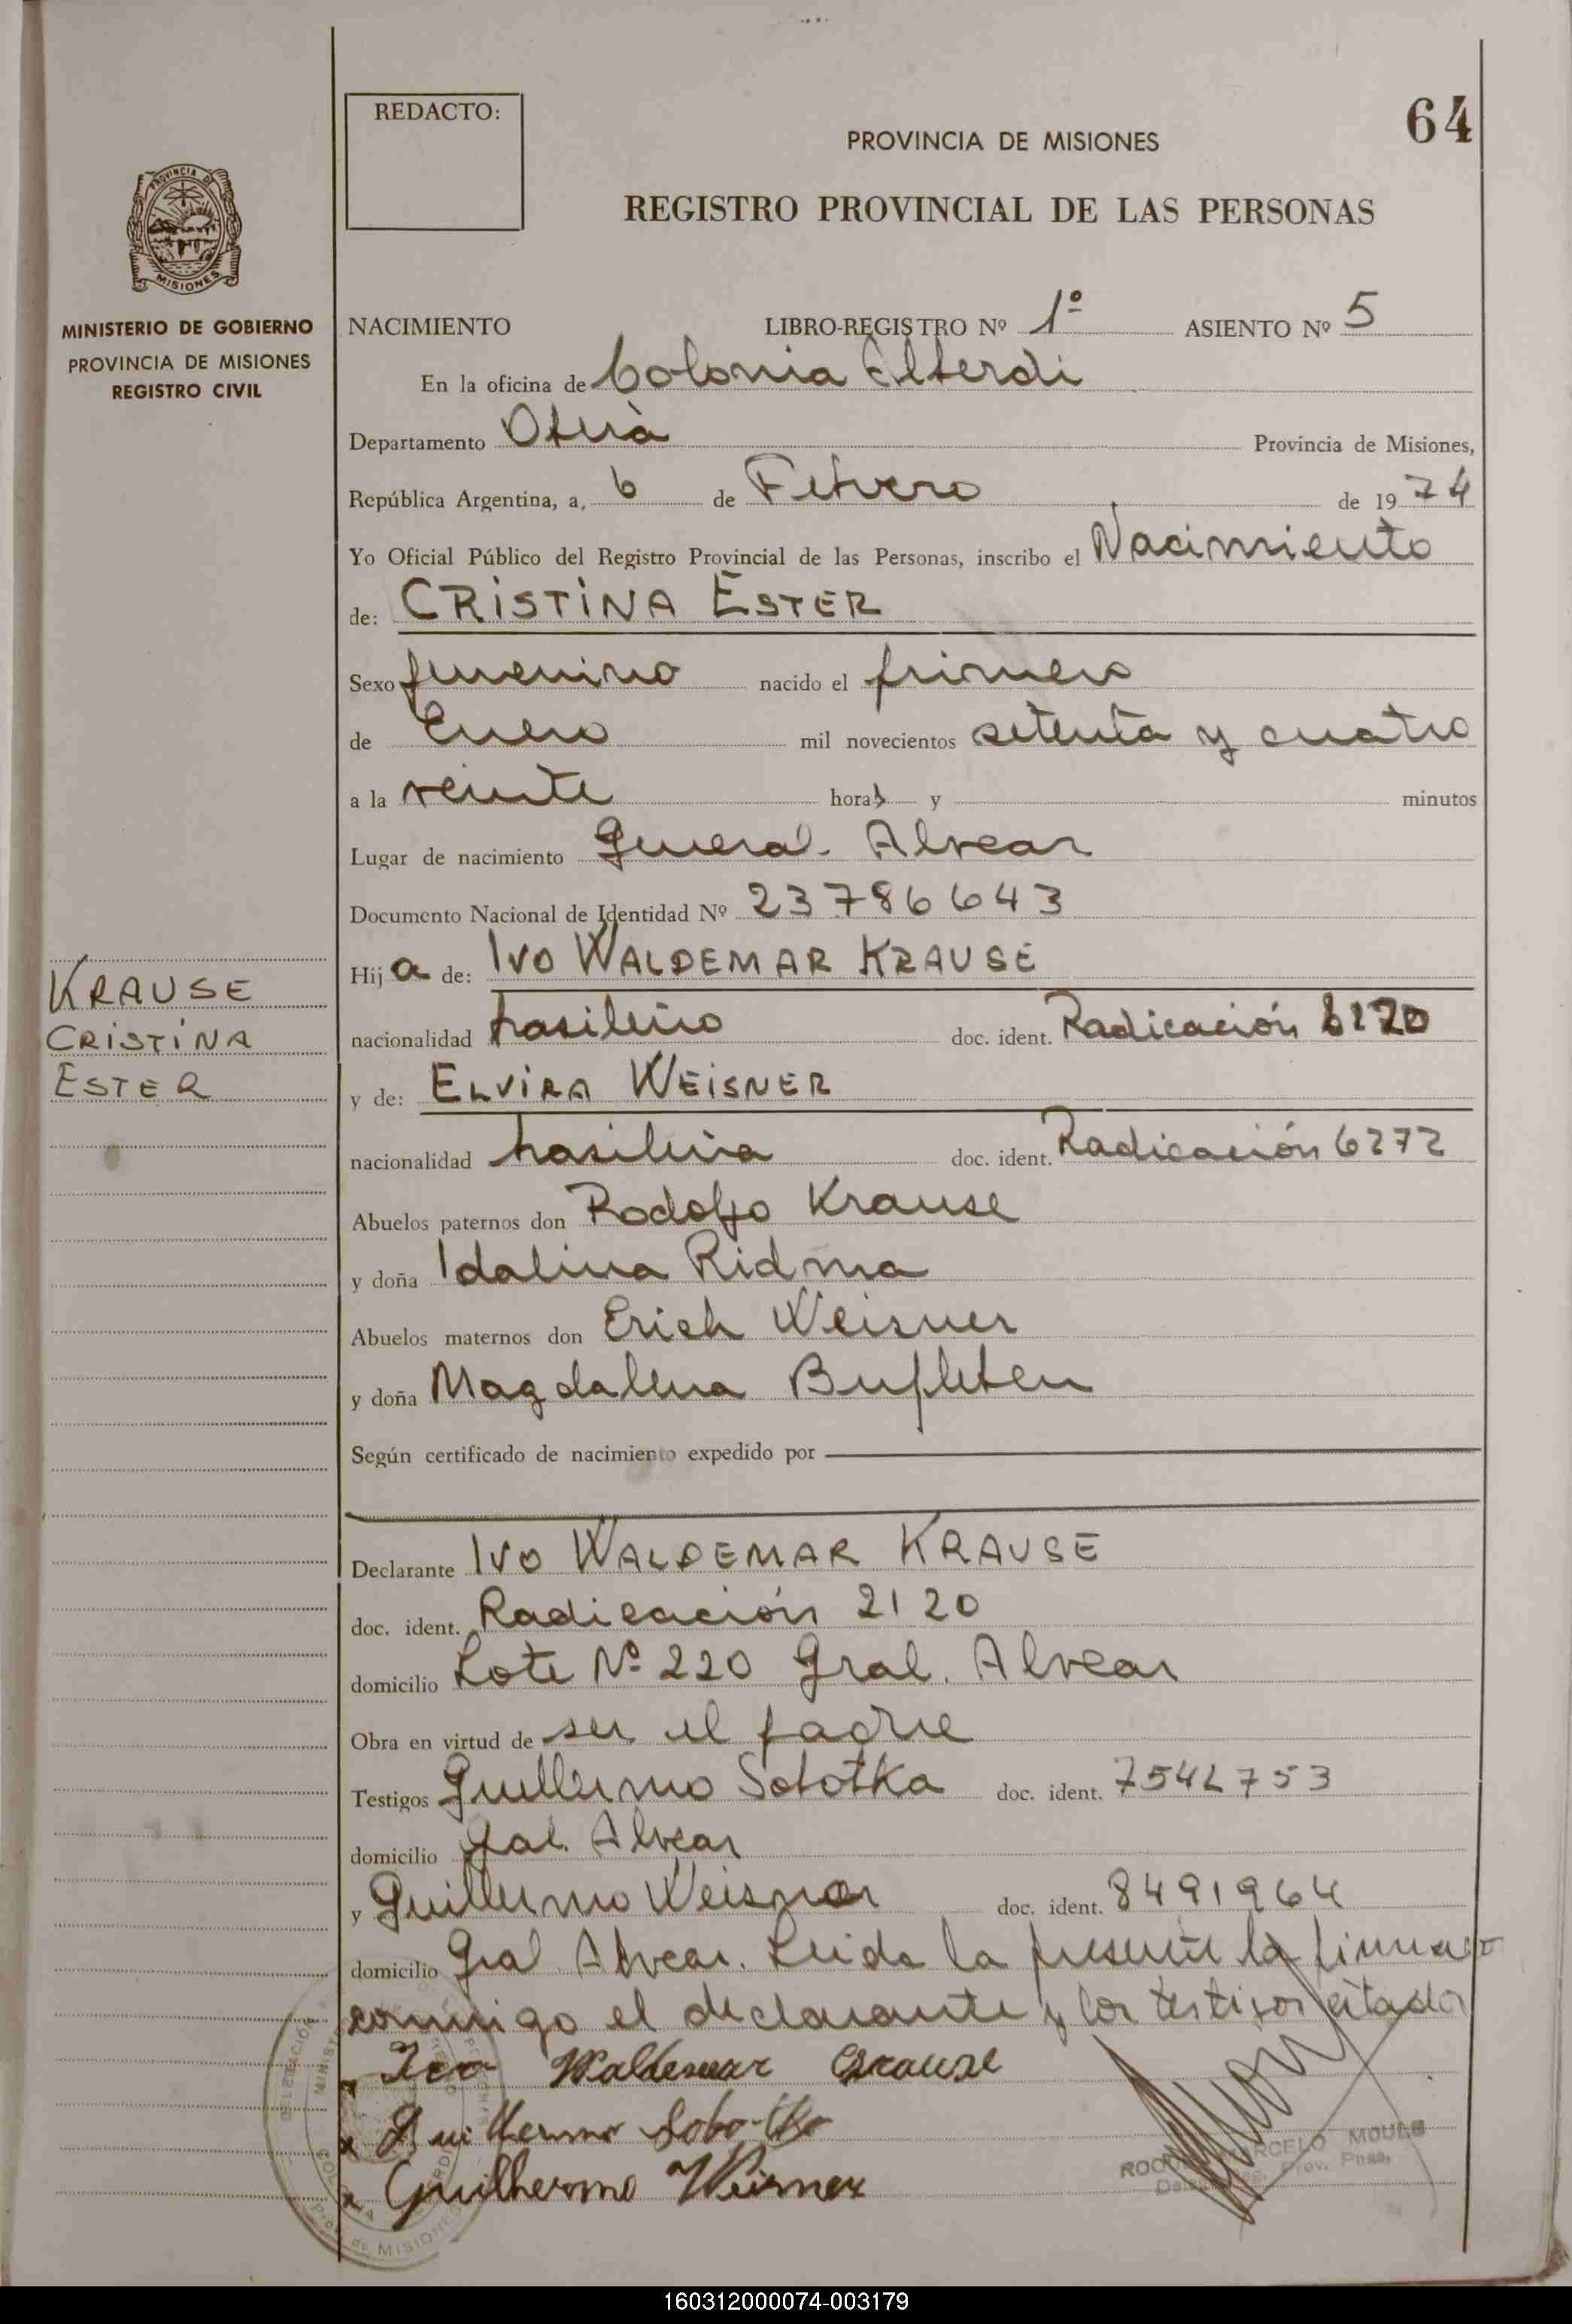 REDACTO:
64
PROVINCIA DE MISIONES
REGISTRO PROVINCIAL DE LAS PERSONAS
PROVINCIA DE
MISIONES
MINISTERIO DE GOBIERNO
PROVINCIA DE MISIONES
REGISTRO CIVIL
NACIMIENTO LIBRO-REGISTRO Nº 1º ASIENTO Nº 5
En la oficina de Colonia Alberdi
Departamento Oberà Provincia de Misiones,
República Argentina, a, 6 de Febrero de 1974
Yo Oficial Público del Registro Provincial de las Personas, inscribo el Nacimiento
de: CRISTINA ESTER
Sexo femenino nacido el primero
de Enero mil novecientos setenta y cuatro
a la veinte horas y minutos
Lugar de nacimiento General Alvear
Documento Nacional de Identidad Nº 23786643
Hija de: IVO WALDEMAR KRAUSE
KRAUSE
CRISTINA
ESTER
nacionalidad brasileño doc. ident. Radicación
y de: ELVIRA WEISNER
nacionalidad brasileña doc. ident. Radicación 6272
Abuelos paternos don Rodolfo Krause
y doña Idalina Ridma
Abuelos maternos don Erich Weisner
y doña Magdalena
Según certificado de nacimiento expedido por
Declarante IVO WALDEMAR KRAUSE
doc. ident. Radicación 2120
domicilio Lote Nº 220 Gral. Alvear
Obra en virtud de ser el padre
Testigos Guillermo Sobotka doc. ident. 7542753
domicilio Gral. Alvear
y Guillermo Weisner doc. ident. 8491964
domicilio Gral Alvear. Leida la presente la firman
conmigo el declarante y los testigos citados
Ivo Waldemar Krause
Guilhermo Sobotka
Guilherme Weisner
MARCELO
Prov.
de MISIONES
160312000074-003179